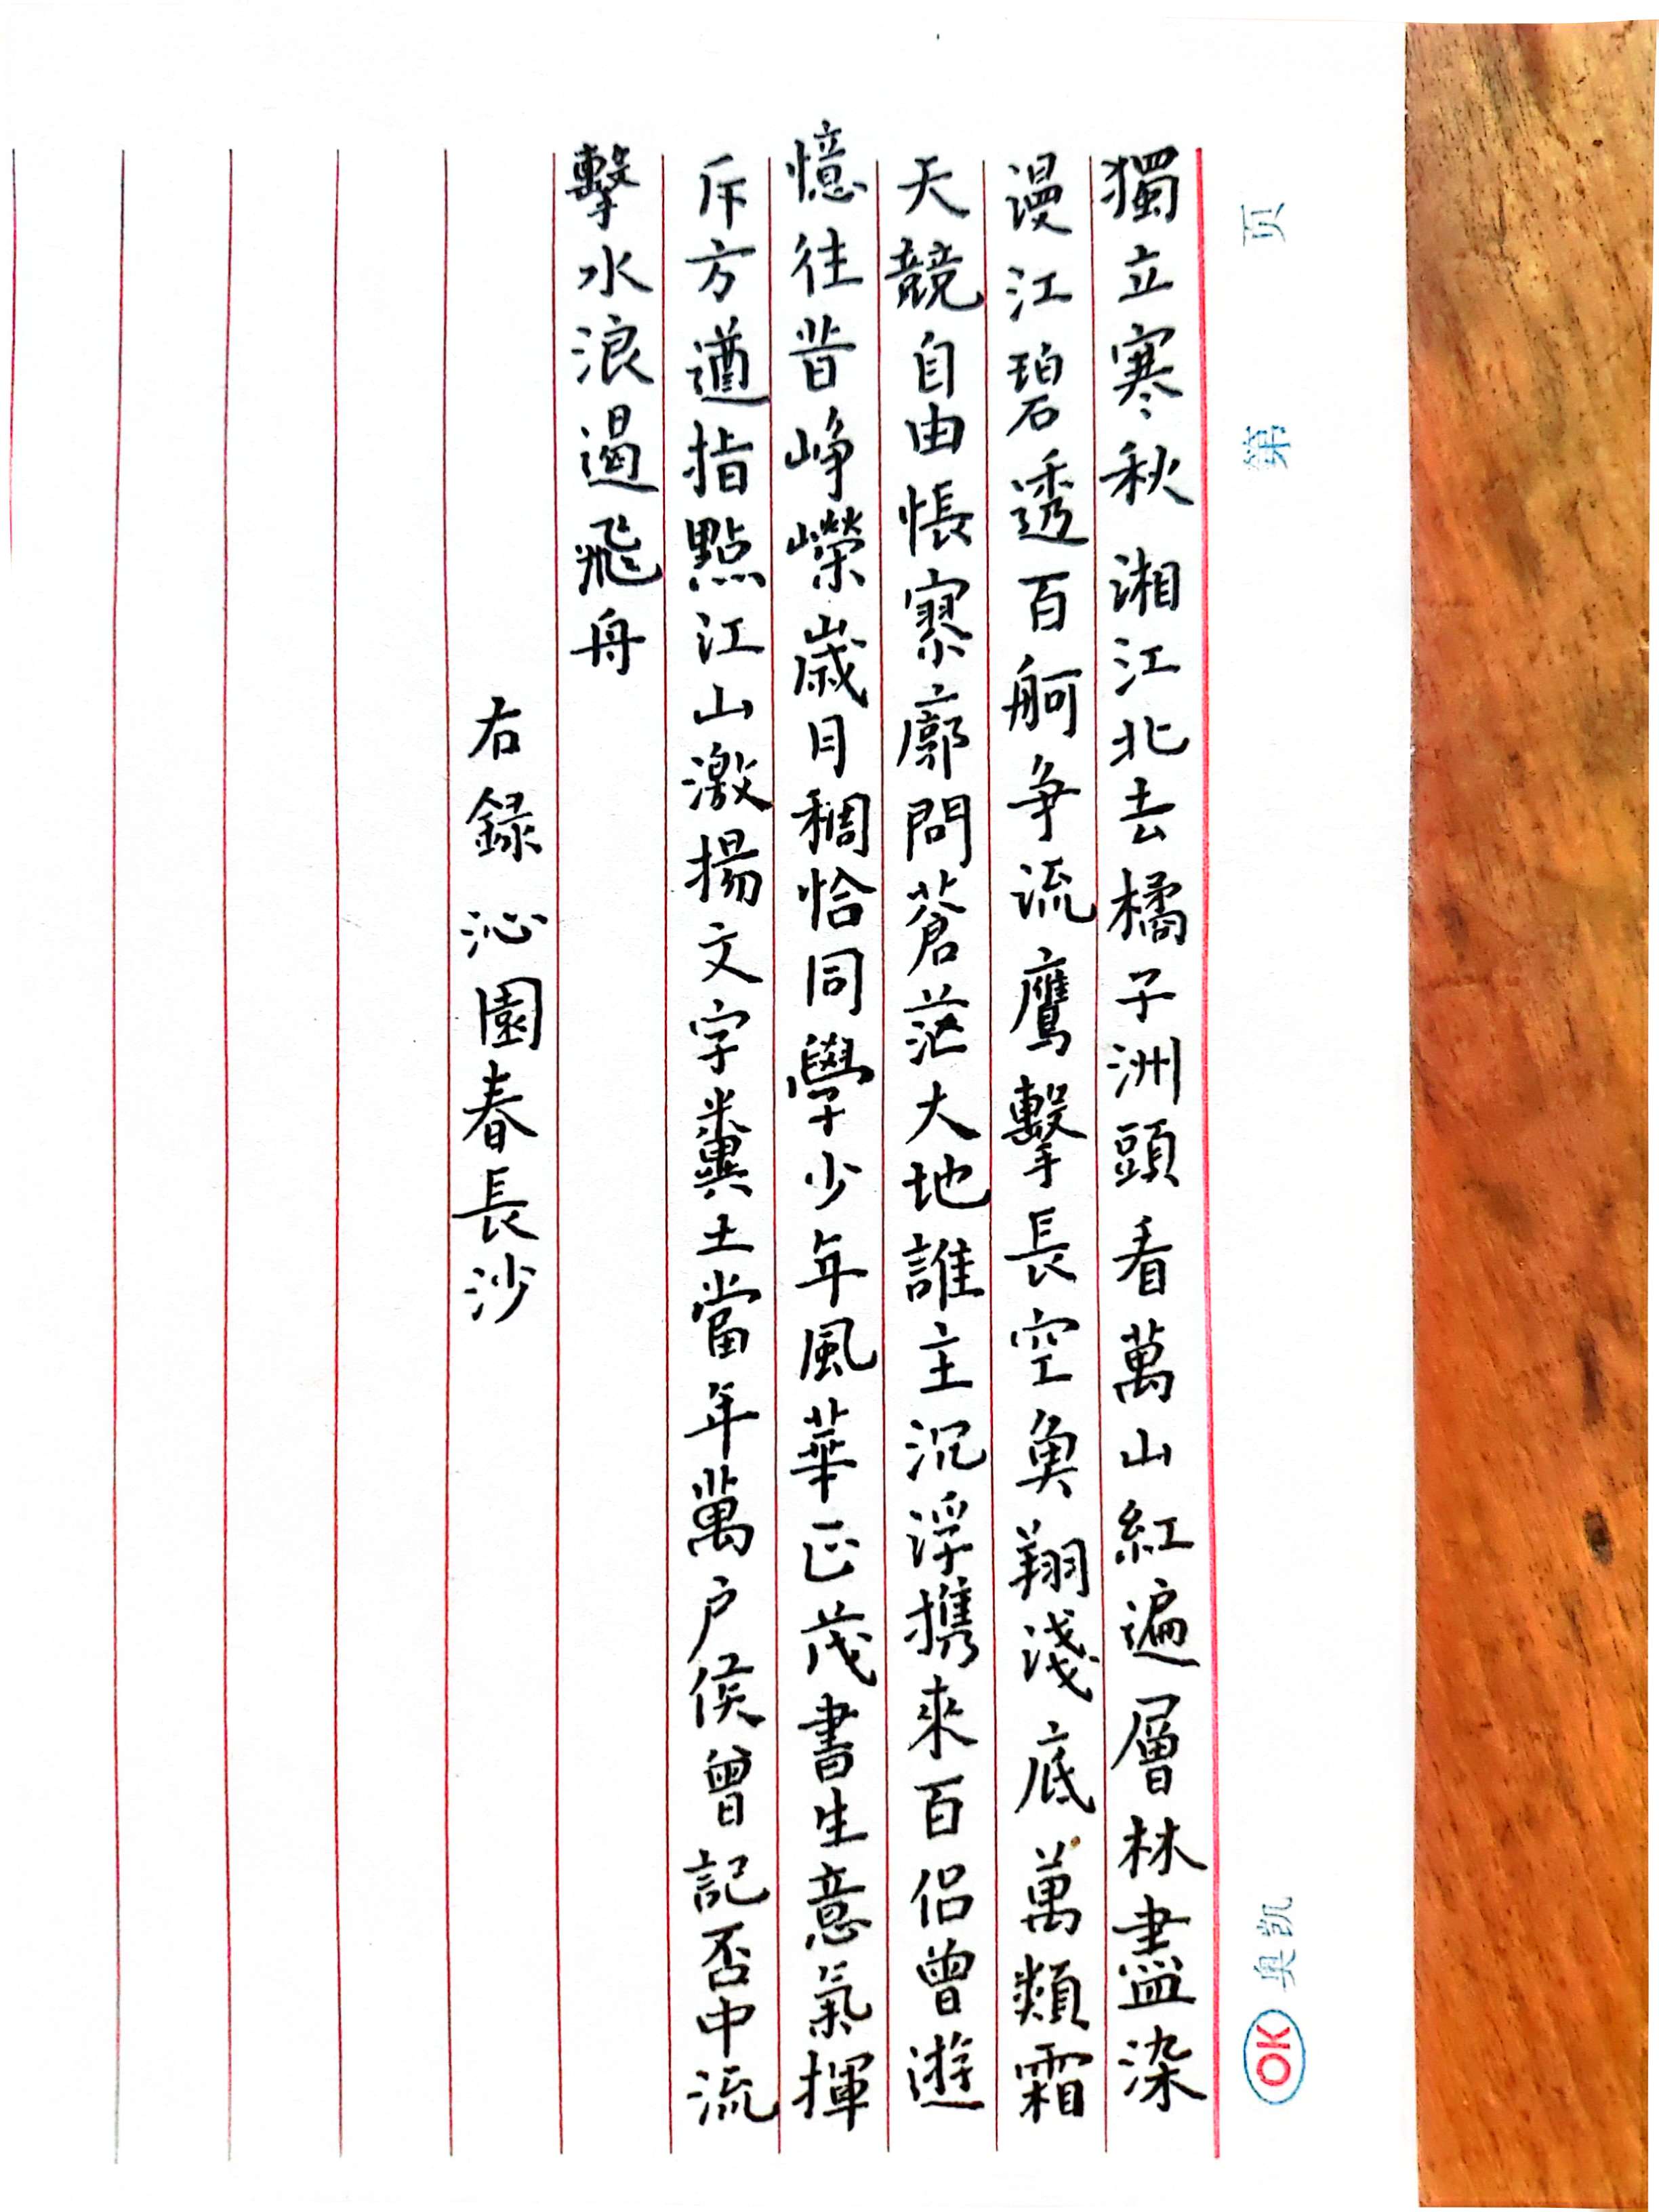 獨立寒秋湘江北去橘子洲頭看萬山紅遍層林盡染
漫江碧透百舸争流鷹擊長空魚翔淺底萬類霜
天競自由悵寥廓問蒼茫大地誰主沉浮携來百侣曾遊
憶往昔峥嶸歲月稠恰同學少年風華正茂書生意氣揮
斥方遒指點江山激揚文字糞土當年萬户侯曾記否中流
擊水浪遏飛舟
右録沁園春長沙
第 页
OK 奥凯